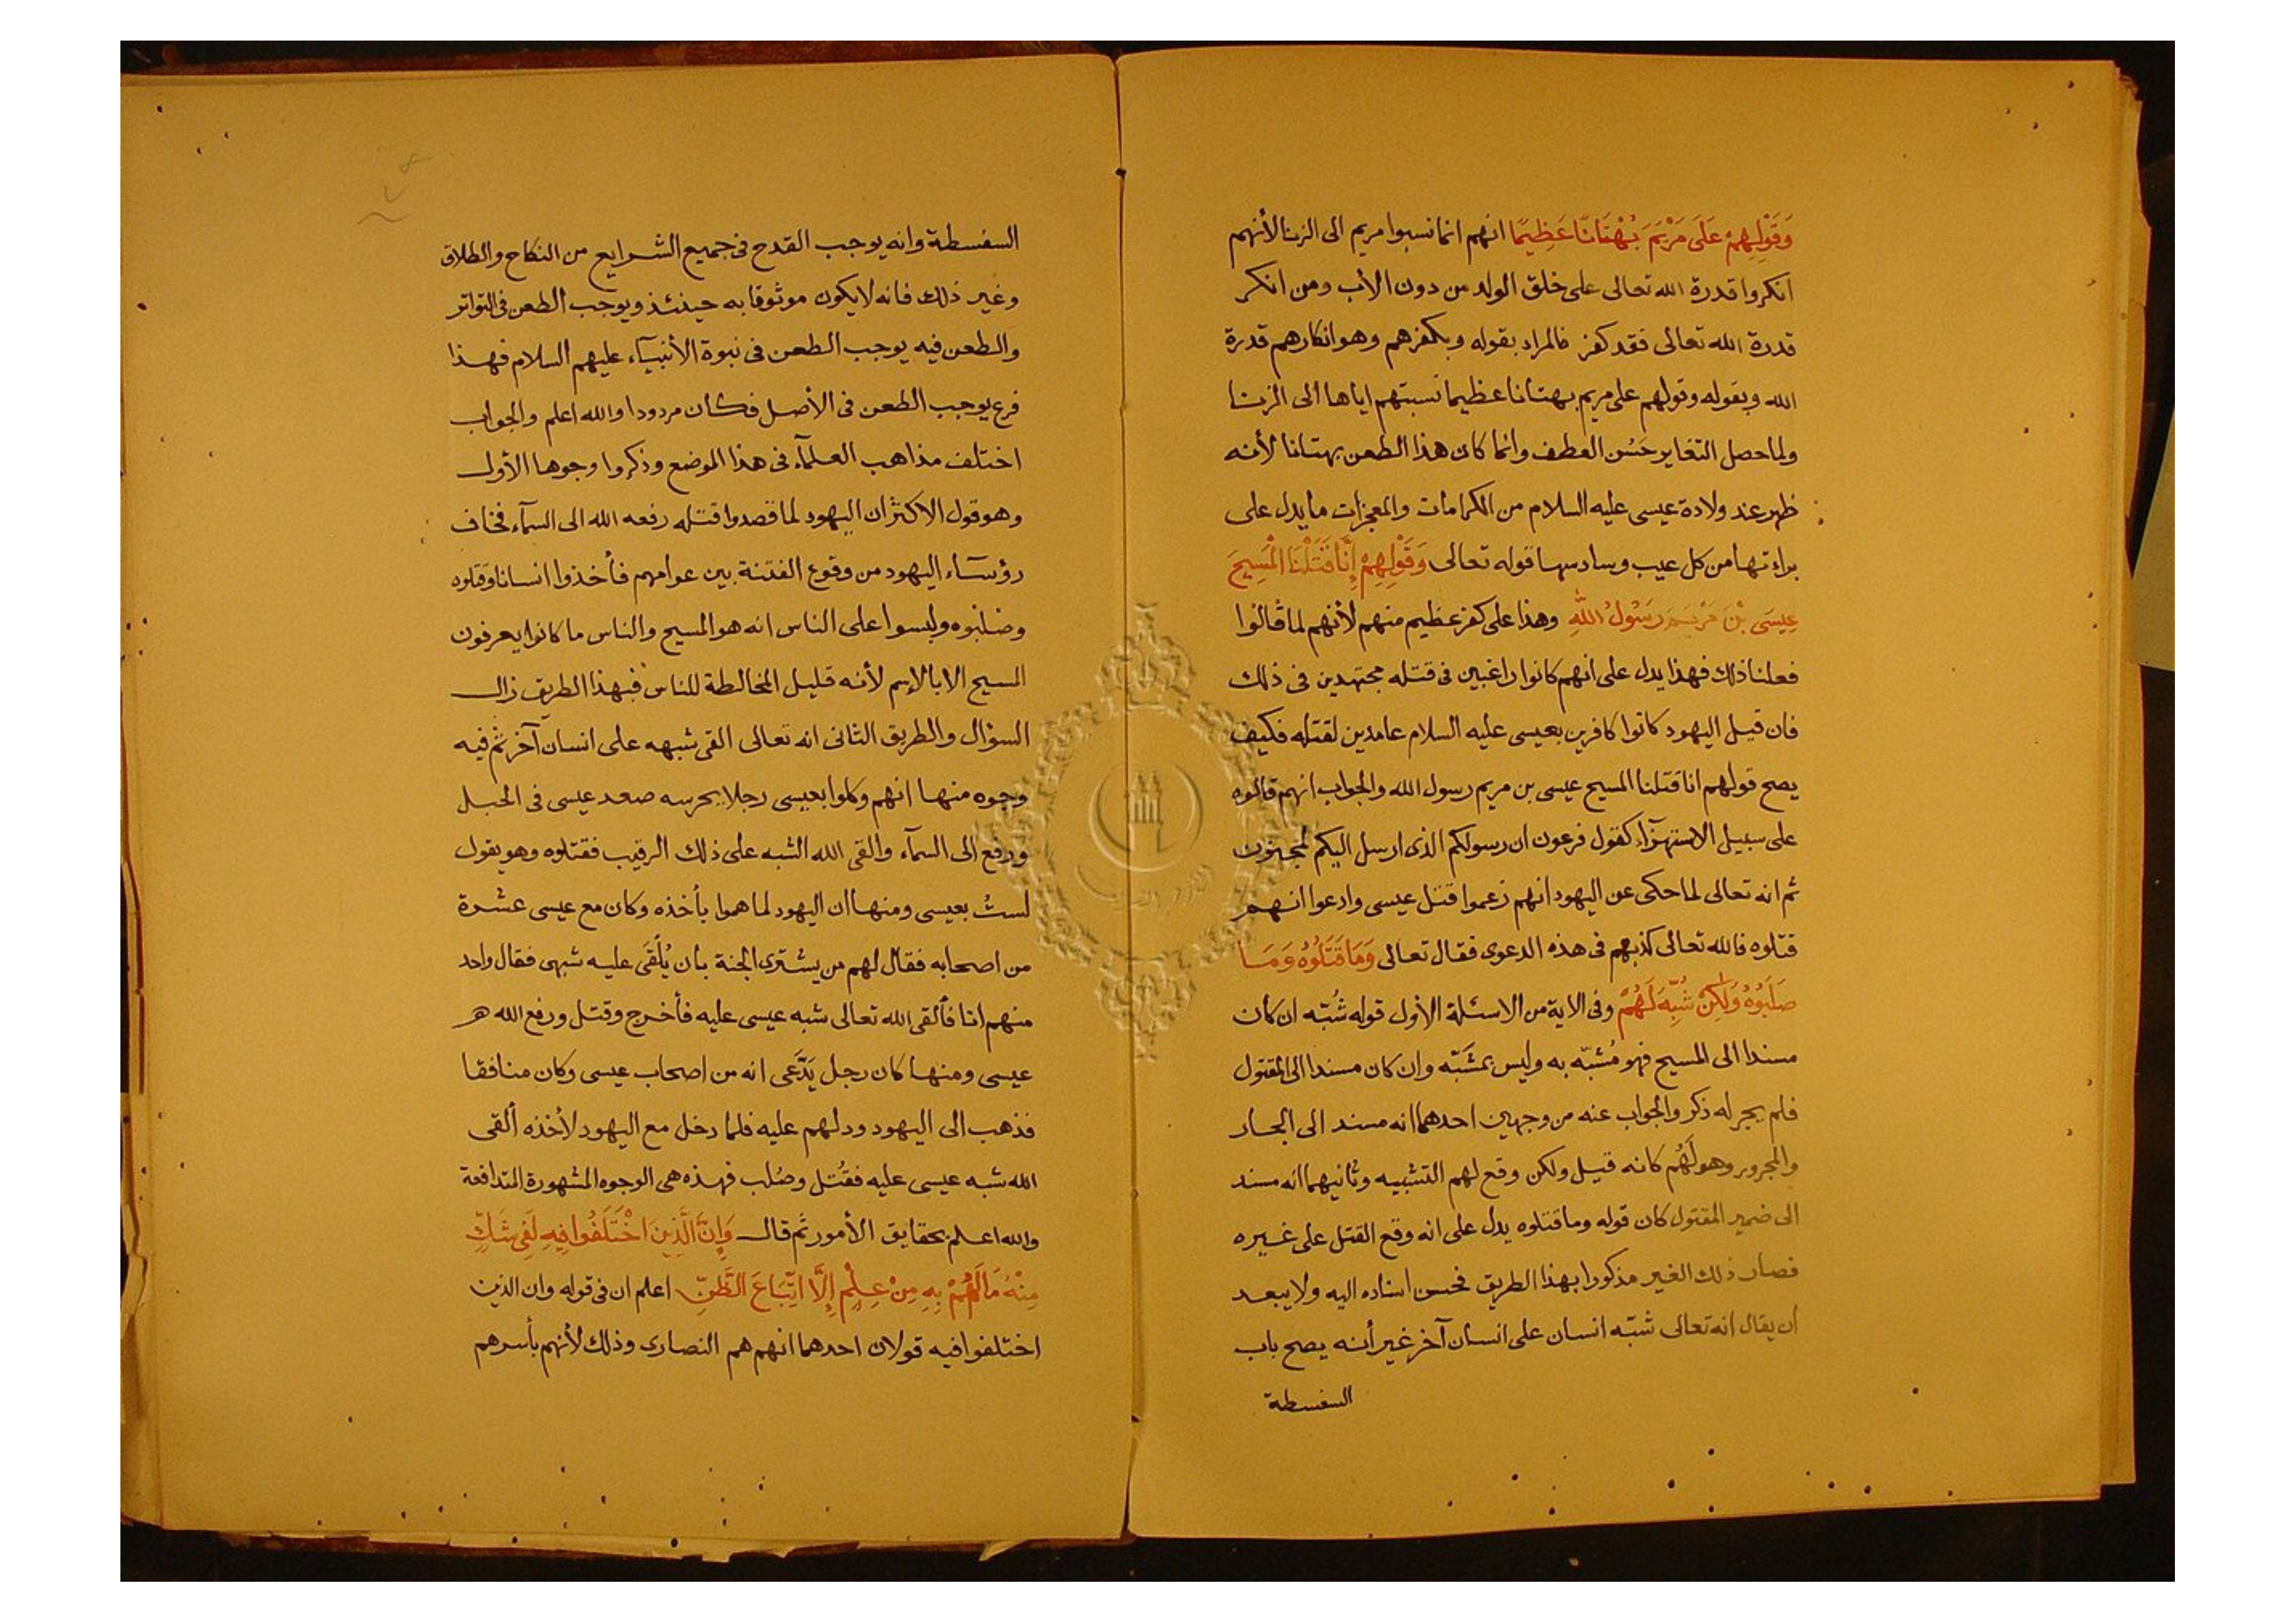 وَقَوْلِهِمْ عَلَى مَرْيَمَ بُهْتَانًا عَظِيمًا انهم انما نسبوا مريم الى الزنا لأنهم
انكروا قدرة الله تعالى على خلق الولد من دون الأب ومن انكر
قدرة الله تعالى فقد كفر فالمراد بقوله وبكفرهم وهو انكارهم قدرة
الله وبقوله وقولهم على مريم بهتانا عظيما نسبتهم اياها الى الزنا
ولما حصل التغاير حَسُن العطف وانما كان هذا الطعن بهتانا لأنه
ظهر عند ولادة عيسى عليه السلام من الكرامات والمعجزات ما يدل على
براءتها من كل عيب وسادسها قوله تعالى وَقَوْلِهِمْ إِنَّا قَتَلْنَا الْمَسِيحَ
عِيسَى بْنَ مَرْيَمَ رَسُولُ اللهِ وهذا على كفر عظيم منهم لأنهم لما قالوا
فعلنا ذلك فهذا يدل على انهم كانوا راغبين فى قتله مجتهدين فى ذلك
فان قيل اليهود كانوا كافرين بعيسى عليه السلام عامدين لقتله فكيف
يصح قولهم انا قتلنا المسيح عيسى بن مريم رسول الله والجواب انهم قالوه
على سبيل الاستهزآء كقول فرعون ان رسولكم الذى ارسل اليكم لمجنون
ثم انه تعالى لما حكى عن اليهود انهم زعموا قتل عيسى وادعوا انهم
قتلوه فالله تعالى كذبهم فى هذه الدعوى فقال تعالى وَمَا قَتَلُوْهُ وَمَا
صَلَبُوْهُ وَلَكِنْ شُبِّهَ لَهُمْ وفى الاية من الاسئلة الأول قوله شُبّه ان كان
مسندا الى المسيح فهو مُشبّه به وليس بمشَبّه وان كان مسندا الى المقتول
فلم يجر له ذكر والجواب عنه من وجهين احدهما انه مسند الى الجار
والمجرور وهو لَهُم كانه قيل ولكن وقع لهم التشبيه وثانيهما انه مسند
الى ضمير المقتول كان قوله وما قتلوه يدل على انه وقع القتل على غيره
فصار ذلك الغير مذكورا بهذا الطريق فحسن اسناده اليه ولا يبعد
أن يقال انه تعالى شبّه انسان على انسان آخر غير أنه يصح باب
السفسطة
السفسطة وانه يوجب القدح فى جميع الشرايع من النكاح والطلاق
وغير ذلك فانه لا يكون موثوقا به حينئذ ويوجب الطعن فى التواتر
والطعن فيه يوجب الطعن فى نبوة الأنبيآء عليهم السلام فهذا
فرع يوجب الطعن فى الأصل فكان مردودا والله اعلم والجواب
اختلف مذاهب العلمآء فى هذا الموضع وذكروا وجوها الأول
وهو قول الاكثر ان اليهود لما قصدوا قتله رفعه الله الى السمآء فخاف
رؤسآء اليهود من وقوع الفتنة بين عوامهم فأخذوا انسانا وقتلوه
وصلبوه ولبسوا على الناس انه هو المسيح والناس ما كانوا يعرفون
المسيح الا بالإسم لأنه قليل المخالطة للناس فبهذا الطريق زال
السؤال والطريق الثانى انه تعالى القى شبهه على انسان آخر ثم فيه
وجوه منها انهم وكلوا بعيسى رجلا يحرسه صعد عيسى فى الجبل
ورفع الى السمآء والقى الله الشبه على ذلك الرقيب فقتلوه وهو يقول
لستُ بعيسى ومنها ان اليهود لما هموا بأخذه وكان مع عيسى عشرة
من اصحابه فقال لهم من يشترى الجنة بأن يُلْقَى عليه شبهى فقال واحد
منهم انا فألقى الله تعالى شبه عيسى عليه فأخرج وقتل ورفع الله
عيسى ومنها كان رجل يَدَّعَى انه من اصحاب عيسى وكان منافقا
فذهب الى اليهود ودلهم عليه فلما دخل مع اليهود لأخذه ألقى
الله شبه عيسى عليه فقُتل وصُلب فهذه هى الوجوه المشهورة المتدافعة
والله اعلم بحقايق الأمور ثم قال وَإِنَّ الَّذِينَ اخْتَلَفُوا فِيهِ لَفِى شَكٍّ
مِنْهُ مَا لَهُمْ بِهِ مِنْ عِلْمٍ إِلَّا اتِّبَاعَ الظَّنِّ اعلم ان فى قوله وان الذين
اختلفوا فيه قولان احدهما انهم هم النصارى وذلك لأنهم بأسرهم